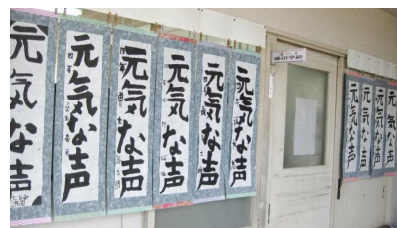 元気な声
元気な声
元気な声
元気な声
元気な声
元気な声
元気な声
元気な声
元気な声
元気な声